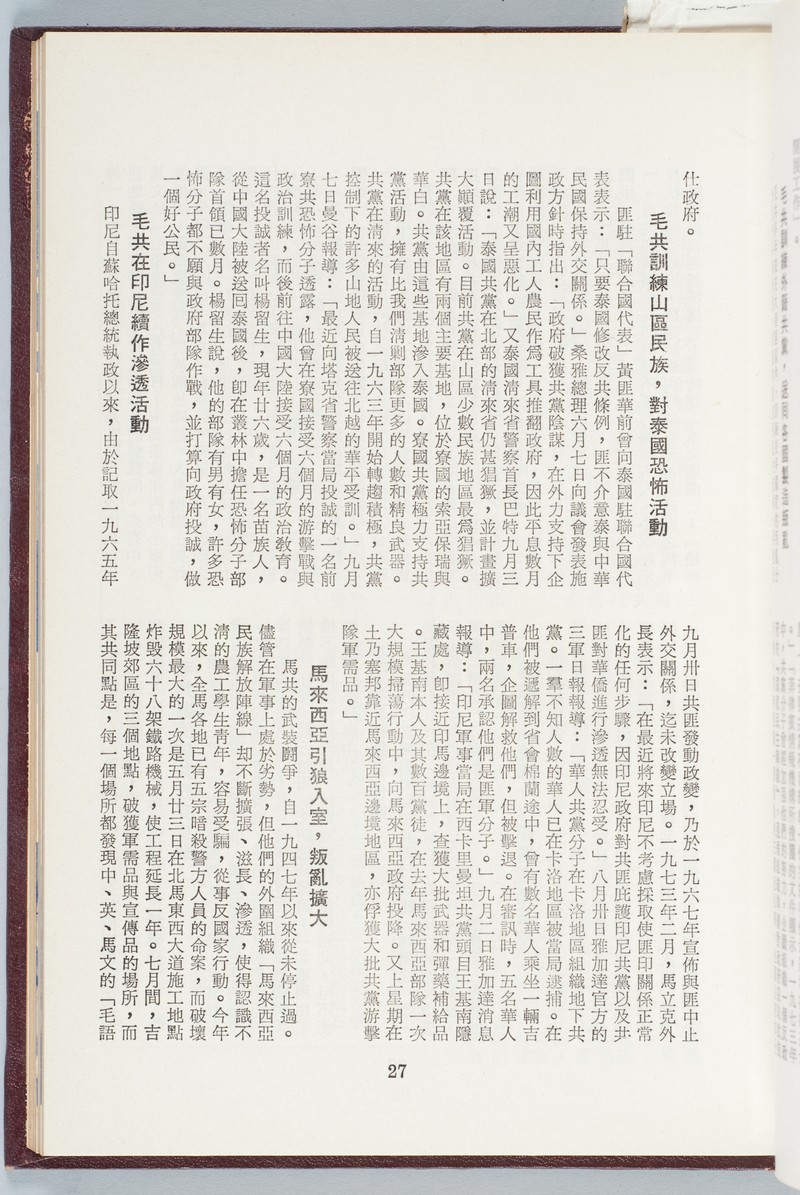 仕政府。
毛共訓練山區民族，對泰國恐怖活動
匪駐「聯合國代表」黃匪華前曾向泰國駐聯合國代
表表示：「只要泰國修改反共條例，匪不介意泰與中華
民國保持外交關係。」桑雅總理六月七日向議會發表施
政方針時指出：「政府破獲共黨陰謀，在外力支持下企
圖利用國內工人農民作為工具推翻政府，因此平息數月
的工潮又呈惡化。」又泰國清來省警察首長巴特九月三
日說：「泰國共黨在北部的清來省仍甚猖獗，並計畫擴
大顚覆活動。目前共黨在山區少數民族地區最為猖獗。
共黨在該地區有兩個主要基地，位於寮國的索亞保瑞與
華白。共黨由這些基地滲入泰國。寮國共黨極力支持共
黨活動，擁有比我們清剿部隊更多的人數和精良武器。
共黨在清來的活動，自一九六三年開始轉趨積極，共黨
控制下的許多山地人民被送往北越的華平受訓。」九月
七日曼谷報導：「最近向塔克省警察當局投誠的一名前
寮共恐怖分子透露，他曾在寮國接受六個月的游擊戰與
政治訓練，而後前往中國大陸接受六個月的政治教育。
這名投誠者名叫楊留生，現年廿六歲，是一名苗族人，
從中國大陸被送回泰國後，卽在叢林中擔任恐怖分子部
隊首領已數月。楊留生說，他的部隊有男有女，許多恐
怖分子都不願與政府部隊作戰，並打算向政府投誠，做
一個好公民。」
毛共在印尼續作滲透活動
印尼自蘇哈托總統執政以來，由於記取一九六五年
九月卅日共匪發動政變，乃於一九六七年宣佈與匪中止
外交關係，迄未改變立場。一九七三年二月，馬立克外
長表示：「在最近將來印尼不考慮採取使匪印關係正常
化的任何步驟，因印尼政府對共匪庇護印尼共黨以及共
匪對華僑進行滲透無法忍受。」八月卅日雅加達官方的
三軍日報報導：「華人共黨分子在卡洛地區組織地下共
黨。一羣不知人數的華人已在卡洛地區被當局逮捕。在
他們被遞解到省會棉蘭途中，曾有數名華人乘坐一輛吉
普車，企圖解救他們，但被擊退。在審訊時，五名華人
中，兩名承認他們是匪軍分子。」九月二日雅加達消息
報導：「印尼軍事當局在西卡里曼坦共黨頭目王基南隱
藏處，卽接近印馬邊境上，查獲大批武器和彈藥補給品
。王基南本人及其數百黨徒，在去年馬來西亞部隊一次
大規模掃蕩行動中，向馬來西亞政府投降。又上星期在
土乃塞邦靠近馬來西亞邊境地區，亦俘獲大批共黨游擊
隊軍需品。」
馬來西亞引狼入室，叛亂擴大
馬共的武裝鬪爭，自一九四七年以來從未停止過。
儘管在軍事上處於劣勢，但他們的外圍組織「馬來西亞
民族解放陣線」却不斷擴張、滋長、滲透，使得認識不
清的農工學生青年，容易受騙，從事反國家行動。今年
以來，全馬各地已有五宗暗殺警方人員的命案，而破壞
規模最大的一次是五月廿三日在北馬東西大道施工地點
炸毀六十八架鐵路機械，使工程延長一年。七月間，吉
隆坡郊區的三個地點，破獲軍需品與宣傳品的場所，而
其共同點是，每一個場所都發現中、英、馬文的「毛語
27